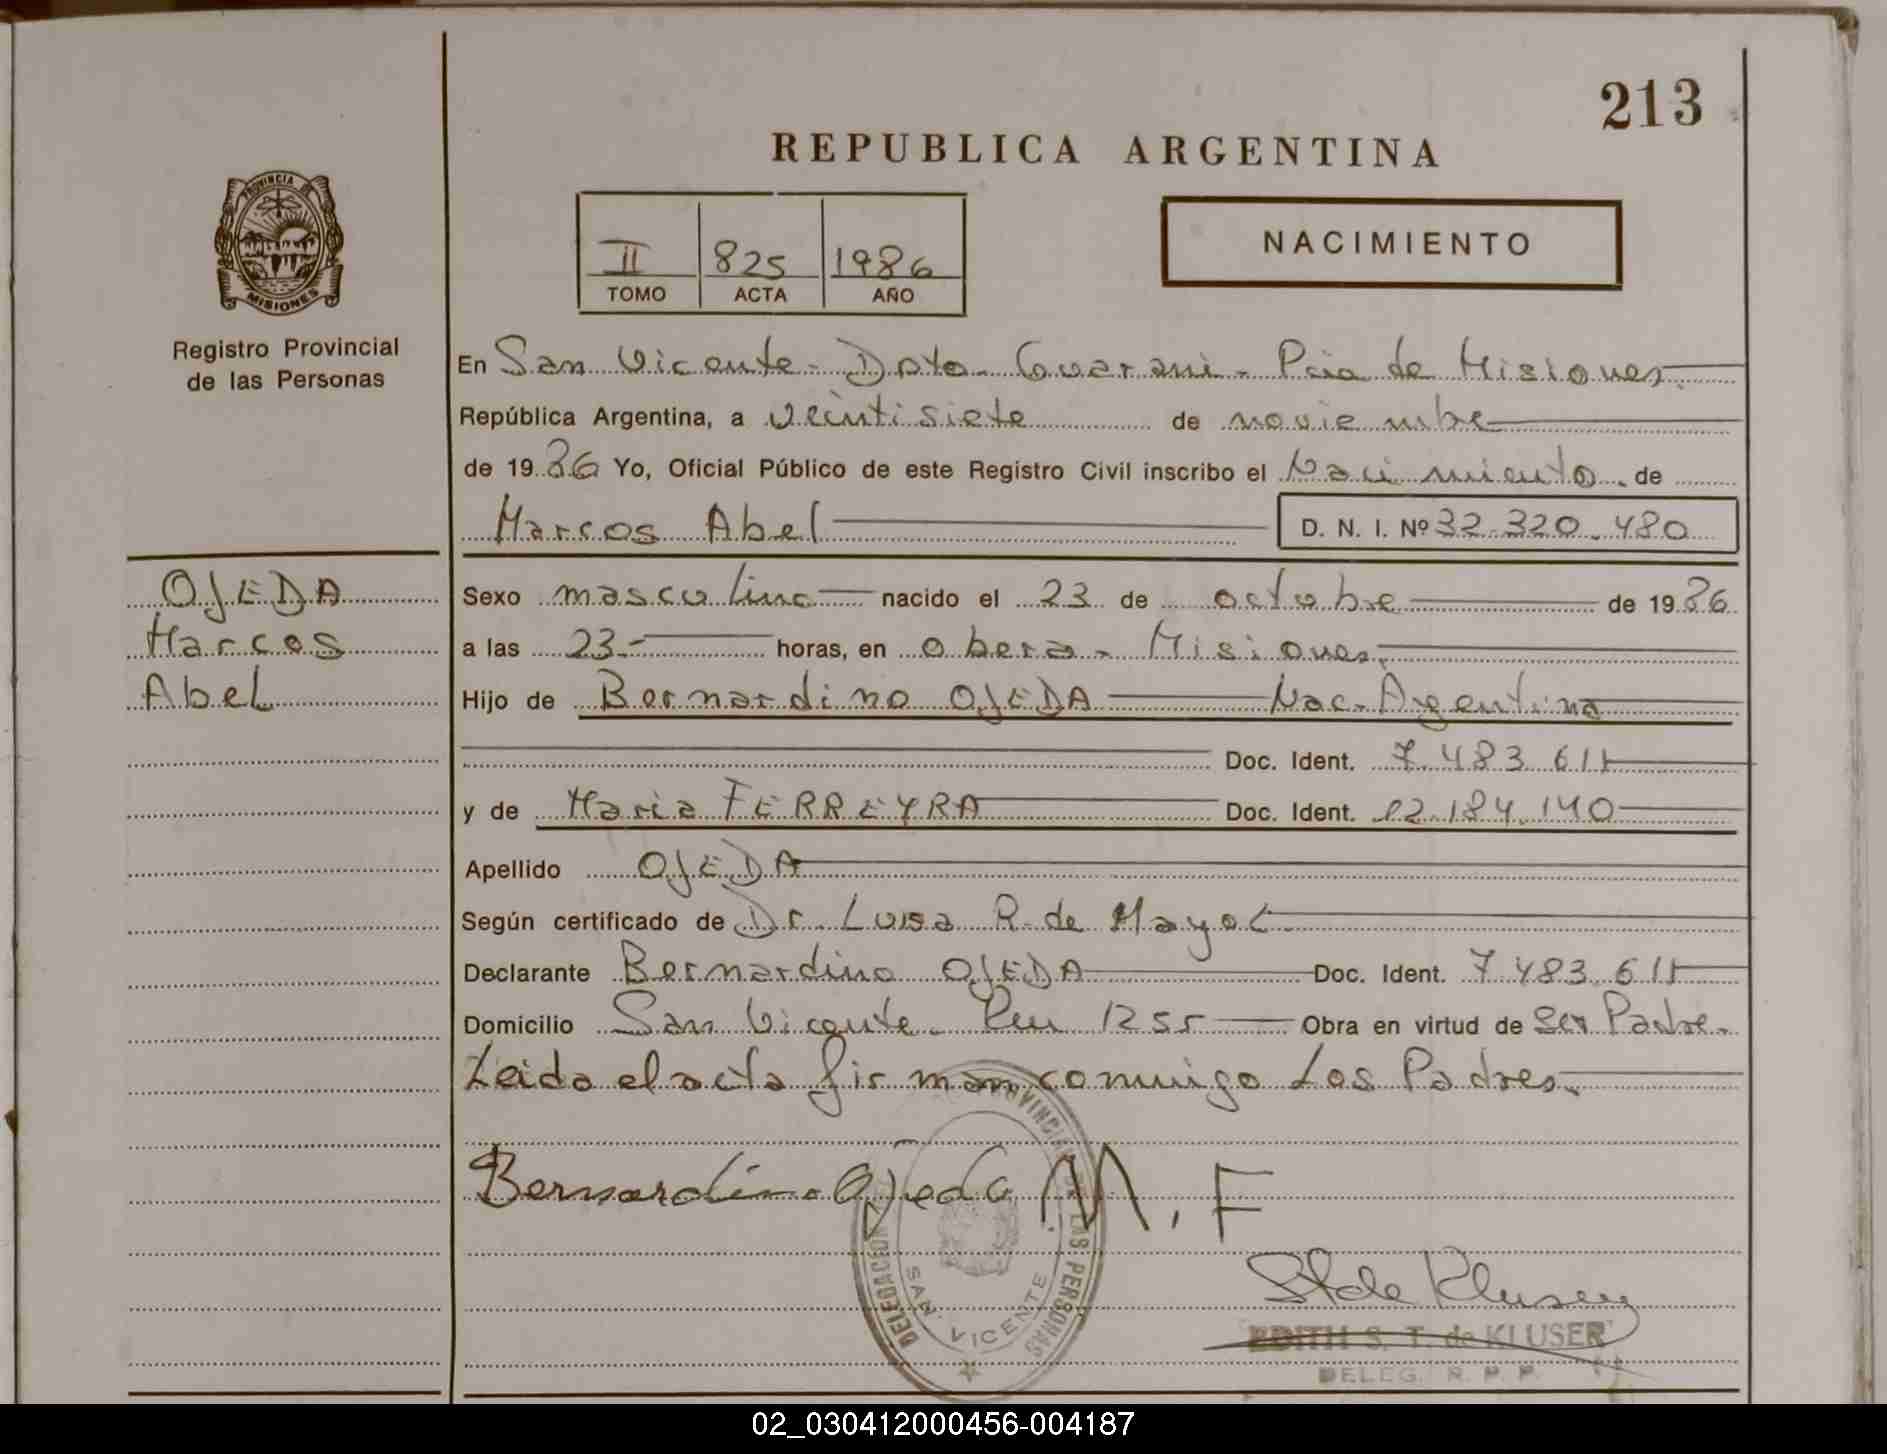 213
REPUBLICA ARGENTINA
PROVINCIA DE
MISIONES
Registro Provincial
de las Personas
II 825 1986
TOMO ACTA AÑO
NACIMIENTO
En San Vicente - Dpto. Guarani - Pcia de Misiones.
República Argentina, a veintisiete de noviembre
de 1986 Yo, Oficial Público de este Registro Civil inscribo el Nacimiento de
Marcos Abel D. N. I. Nº 32.320.480
OJEDA
Marcos
Abel
Sexo masculino nacido el 23 de octubre de 1986
a las 23- horas, en Obera - Misiones.
Hijo de Bernardino OJEDA Nac. Argentina
Doc. Ident. 7.483.611
y de Maria FERREYRA Doc. Ident. 12.184.140
Apellido OJEDA
Según certificado de Dr. Luisa R. de Mayol
Declarante Bernardino OJEDA Doc. Ident. 7.483.611
Domicilio San Vicente - Km 1255 Obra en virtud de Ser Padre.
Leida el acta firman conmigo Los Padres.
Bernardino Ojeda M. F
St de Kluser
EDITH S. T. de KLUSER
DELEG. R. P. P.
DELEGACION PROVINCIAL DE LAS PERSONAS
SAN VICENTE
02_030412000456-004187